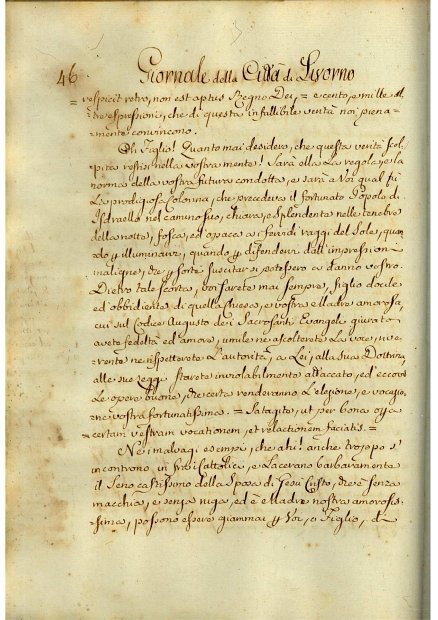 46 Giornale della Città di Livorno
= respicit retro, non est aptus Regno Dei, = e cento, e mille al=
=tre espressioni, che di questa infallibile verità noi piena=
=mente convincono.
Oh Figlio! Quanto mai desidero, che questa verità scol=
pita resti nella vostra mente! Sarà ella La regola, e la
norma della vostra futura condotta, e sarà a Voi qual fù
La prodigiosa Colonna, che precedeva il fortunato Popolo di
Isdraello nel camino suo, chiara, e splendente nelle tenebre
della notte, fosca, ed opaca a i fervidi raggi del Sole, quan
do p illuminare, quando p difendervi dall' impressioni
maligne, che p sorte suscitar si potessero a danno vostro.
Dietro tale scorta, voi sarete mai sempre, figlio docile
ed obbidiente di quella Chiesa, e vostra Madre amorosa,
cui sul Codice Augusto de i Sacrosanti Evangeli giurato
avete fedeltà ed amore, umile ne ascolterete La voce, rive=
rente ne rispetterete L'autorità, a Lei, alla sua Dottrina
alle sue Leggi starete inviolabilmente attaccato, ed eccovi
Le opere buone, che certa renderanno L'elezione, e vocazio
ne vostra fortunatissima. = Satagite, ut per bona opera
certam vestram vocationem, et relectionem faciatis. =
Nè i malvagi esempi, che ahi! anche troppo s'
incontrono in frà i Cattolici, e Lacerano barbaramente
il Seno castissimo della Sposa di Gesù Cristo, che è senza
macchia, e senza ruga, ed è Madre nostra amorosis=
=sima, possono essere giammai p Voi, o Figlio, di